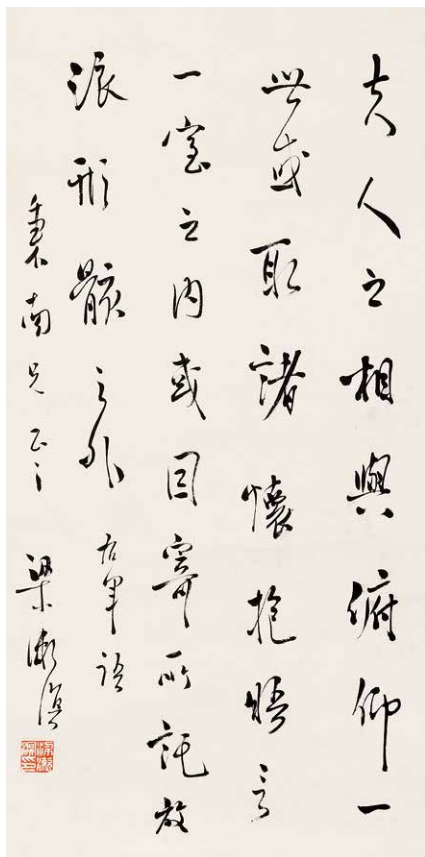 夫人之相與俯仰一
世或取諸懷抱晤言
一室之內或因寄所託放
浪形骸之外 右軍語
秉南兄正之 梁漱溟
梁漱溟印